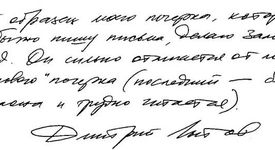 образец моего почерка, котор
ычно пишу письма, делаю зам
д. Он сильно отличается от м
вого" почерка (последний —
и трудно читается).
Дмитрий